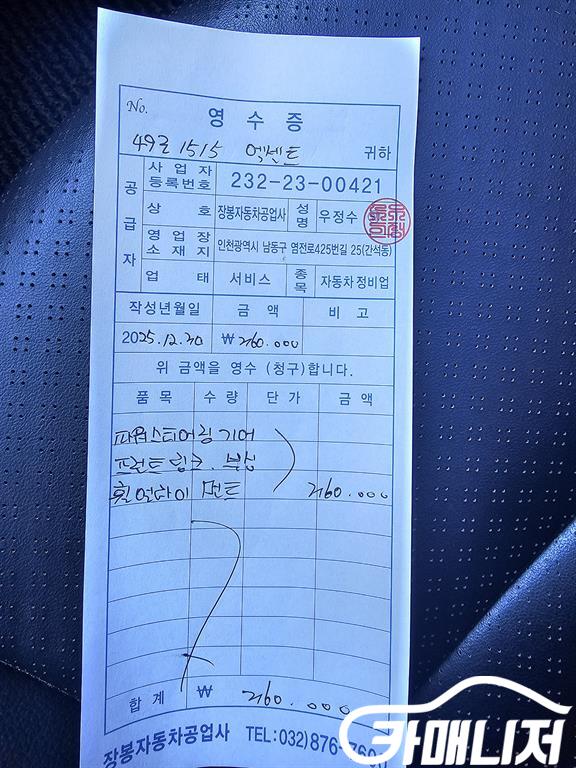 No.
영 수 증
49로 1515 엑센트 귀하
공급자
사업자등록번호 232-23-00421
상 호 장봉자동차공업사 성명 우정수
영업장소재지 인천광역시 남동구 염전로425번길 25(간석동)
업 태 서비스 종목 자동차정비업
작성년월일 금 액 비 고
2025.12.20 ₩260.000
위 금액을 영수 (청구)합니다.
품 목 수 량 단 가 금 액
파워스티어링기어
프런트링크.부싱
휠얼라이먼트 260.000
합 계 ₩ 260.000
장봉자동차공업사 TEL:032)876-7600
카매니저